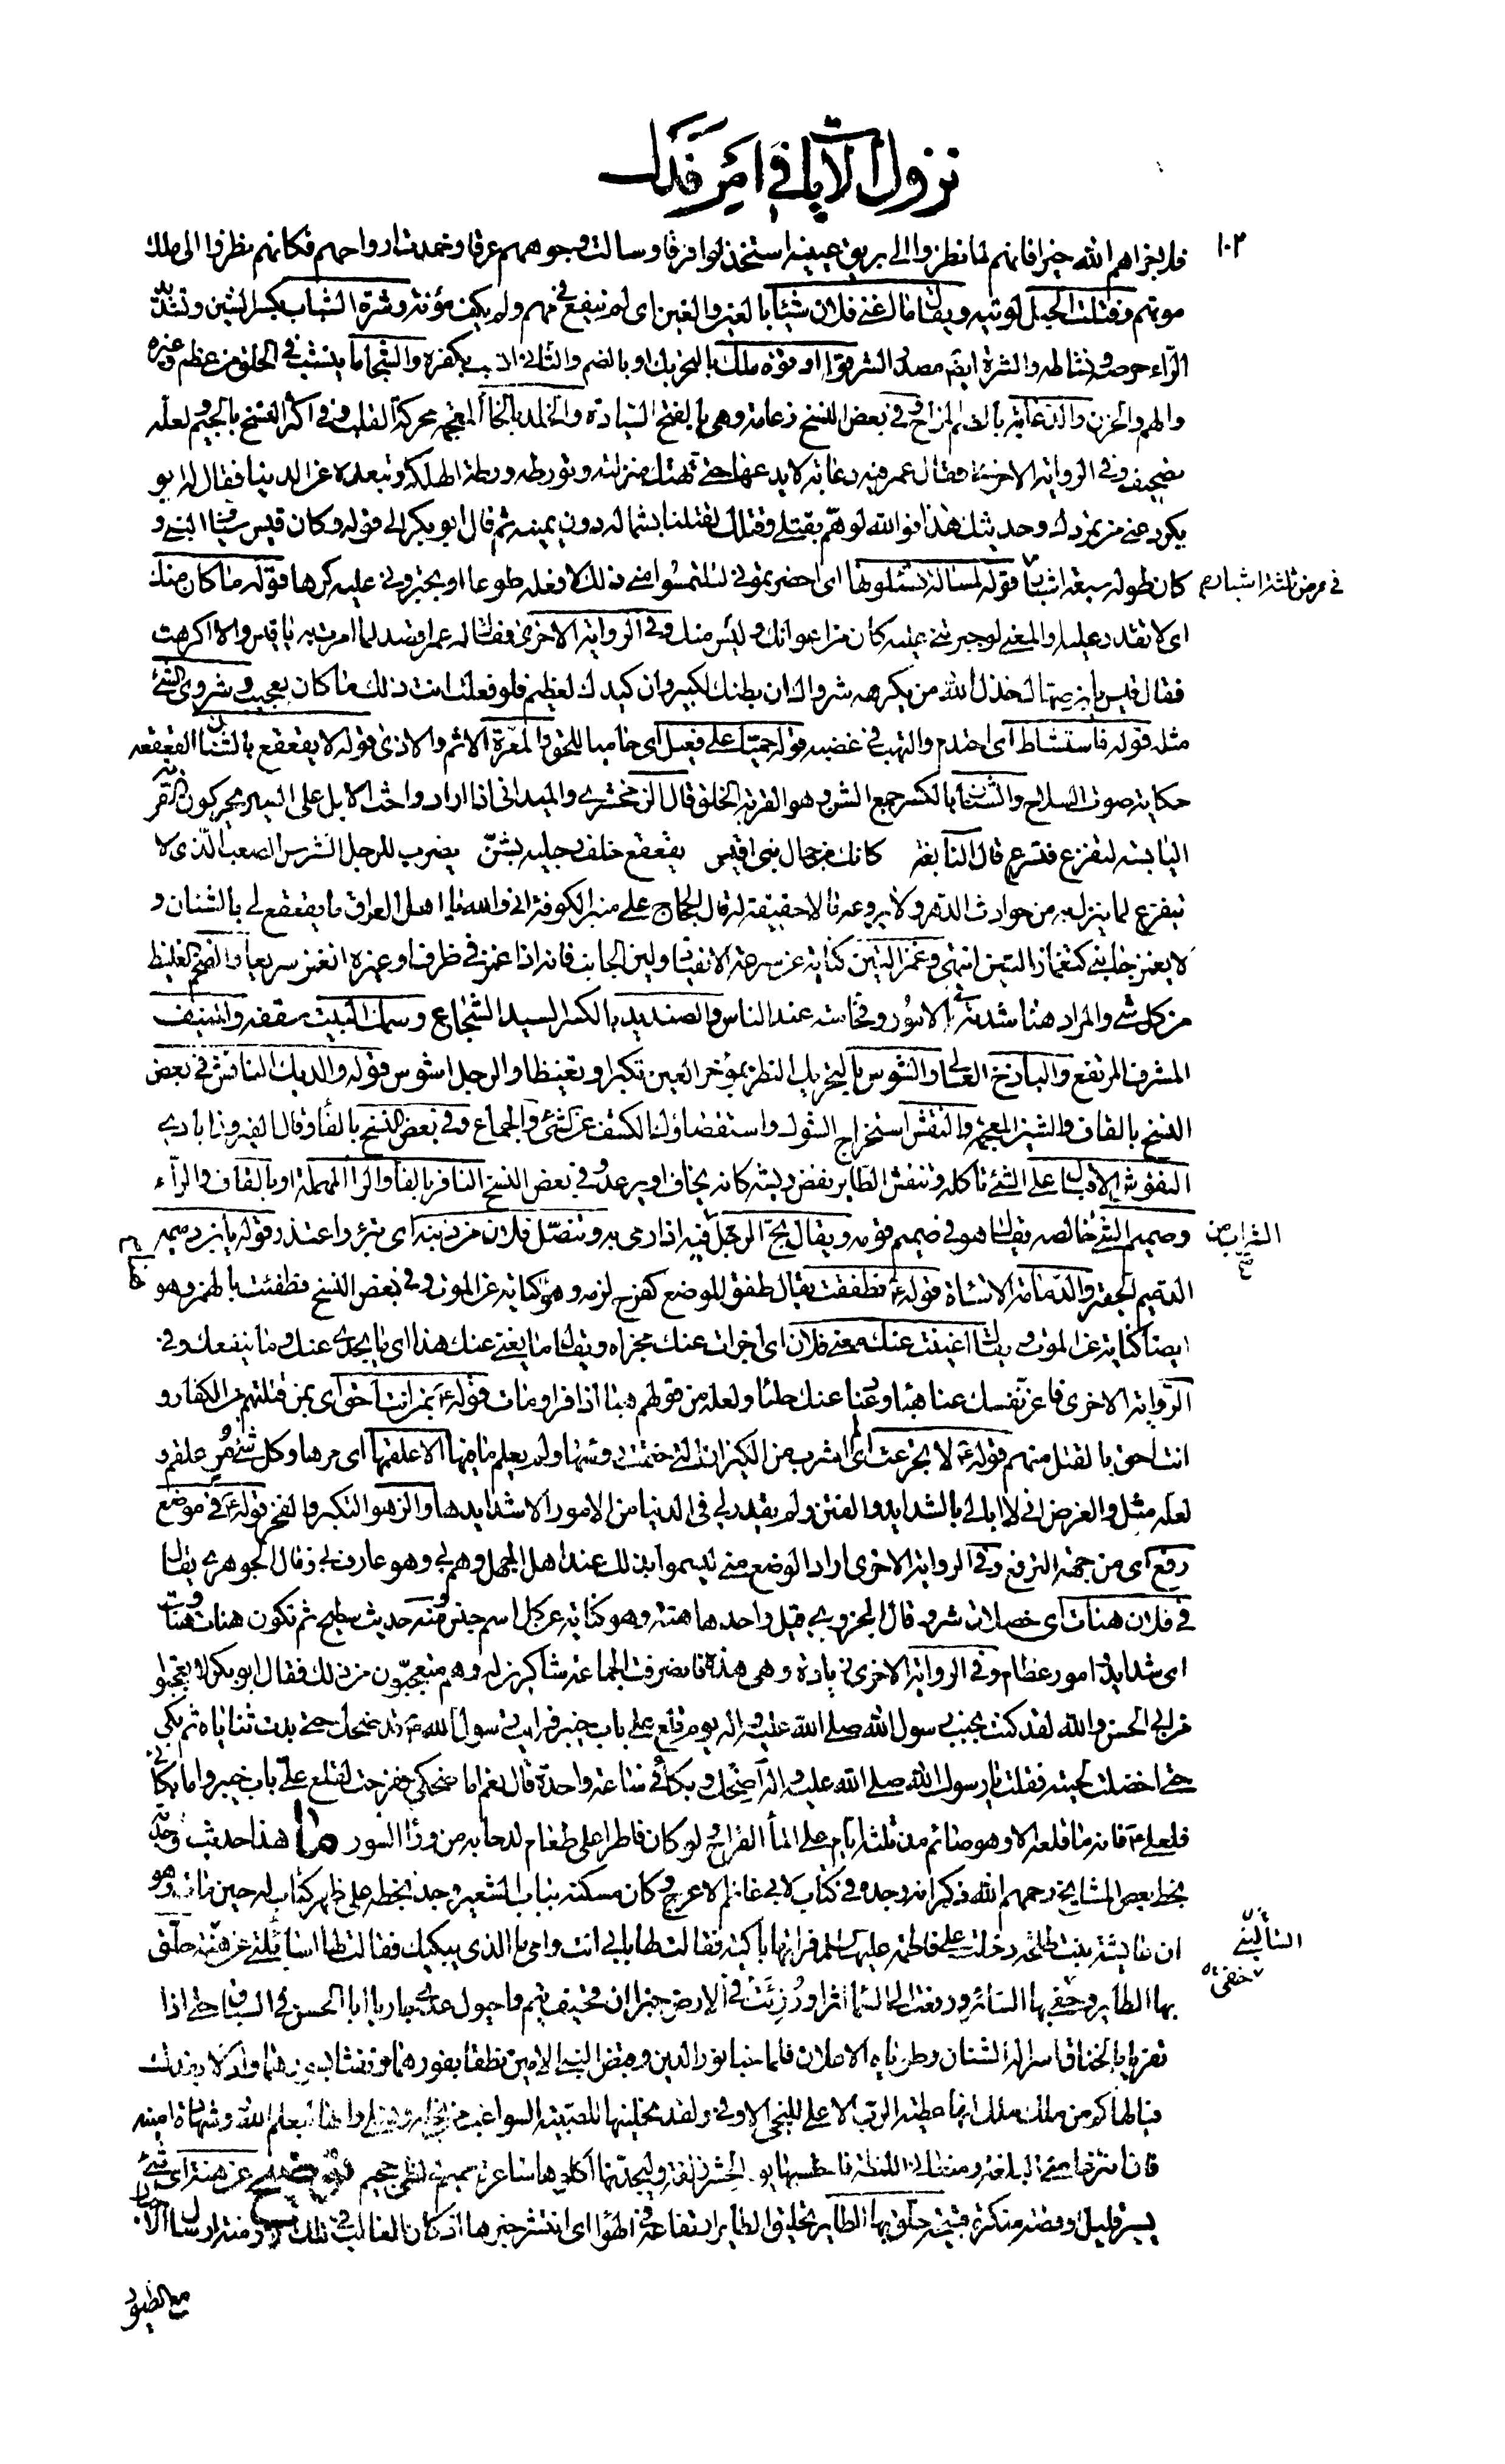 نزول الآيات في امر فدك
١٠٣
فلا جزاهم الله خيرا فانهم لما نظروا الى بريق عينيه استخذلوا فرقا وسالت وجوههم عرقا وخمدت ارواحهم فكانهم نظروا الى ملك
موتهم وفتلت الحبل لويته ويقال ما اغنى فلان شيئا بالعين والغين اى لم ينفع في مهم ولم يكف مؤنة وشرة الشباب بكسر الشين وتشديد
الرّاء حرصه ونشاطه والشرة ايضا مصدر الشر قوله او قوة ملك بالتحريك او بالضم والثانى انسب بكفره والشجا ما ينشب في الحلق من عظم وغيره
والهم والحزن والدعابة بالضم المزاح وفي بعض النسخ زعامة وهى بالفتح السيادة والخلد بالخاء المعجمة محركة القلب وفي اكثر النسخ بالجيم ولعله
تصحيف وفي الرواية الاخرى فقال عمر فيه دعابة لا يدعها حتى تهتك منزلته وتورطه ورطة الهلكة وتبعده عن الدنيا فقال له ابو
بكر دعنى من تمردك وحديثك هذا فوالله لو هم بقتلى وقتلك لقتلنا بشماله دون يمينه ثم قال ابو بكر الى قوله وكان قيس سياف النبى و
كان طوله سبعة اشبار قوله لمسألة تسئلونها اى احضرتمونى لتلتمسوا منى ذلك لافعله طوعا او تجبرونى عليه كرها قوله ما كان منك
في عرض ثلثة اشبار
اى لا تقدر عليه والمعنى لو جبرتنى عليه كان من اعوانك وليس منك وفي الرواية الاخرى فقال له عمر اقصد لما امرت به يا قيس والا اكرهت
فقال قيس يا بن صهاك خذل الله من يكرهه شرواك ان بطنك لكبير وان كيدك لعظيم فلو فعلت انت ذلك ما كان بعجيب وشروى الشئ
مثله قوله فاستشاط اى احتدم والتهب في غضبه قوله حميّا على فعيل اى حاميا للحق والمعرة الاثم والاذى قوله لا يقعقع بالشنان القعقعة
حكاية صوت السلاح والشنان بالكسر جمع الشن وهو القربة الخلق قال الزمخشرى والميدانى اذا ارادوا حث الابل على السير يحركون القربة
اليابسة لتفزع فتسرع قال النابغة كانك من جمال بنى اقيس يقعقع خلف رجليه بشنّ يضرب للرجل الشرس الصعب الذى لا
يتفزع لما ينزل به من حوادث الدهر ولا يروعه ما لا حقيقة له قال الحجاج على منبر الكوفة انى والله يا اهل العراق ما يقعقع لى بالشنان و
لا يغمز جانبى كتغماز التين انتهى وغمز التين كناية عن سرعة الانقياد ولين الجانب فانه اذا غمز في ظرف او غيره انغمز سريعا والضخم الغليظ
من كل شئ والمراد هنا شدته في الامور وفخامته عند الناس والصنديد بالكسر السيد الشجاع وسمك البيت سقفه والمنيف
المشرف المرتفع والباذخ العالى والشوس بالتحريك النظر بمؤخر العين تكبرا وتغيظا والرجل اشوس قوله والديك النافش في بعض
النسخ بالقاف والشين المعجمة والنقش استخراج الشوك واستقصاؤك الكشف عن الشئ والجماع وفي بعض النسخ بالفاء وقال الفيروزابادى
النفوش الاقبال على الشئ تأكله وتنفش الطاير نفض ريشه كانه يخاف او يرعد وفي بعض النسخ النافر بالفاء والراء المهملة او بالقاف والراء
وصميم الشئ خالصه يقال هو في صميم قومه ويقال بجّ الرجل فيه اذا رمى به وتنصّل فلان من ذنبه اى تبرأ واعتذر قوله يا بن دميمة
الدميم الحقير والدمامة الاساءة قوله ع فطفقت يقال طفق الموضع كفرح لزمه وهو كناية عن الموت وفي بعض النسخ فطفئت بالهمز وهو
ايضا كناية عن الموت ويقال اغنيت عنك مغنى فلان اى اجزات عنك مجزاه ويقال ما يغنى عنك هذا اى ما يجدى عنك وما ينفعك وفي
الرّواية الاخرى
انت احق بالقتل منهم قوله ع لا يجزعك
لعله مثل والغرض انى لا ابالى بالشدايد والفتن ولم يقدر لى في الدنيا من الامور الا شدايدها والزهو التكبر والفخر قوله ع في موضع
رفع اى من جهة الترفع وفي الرواية الاخرى اراد الوضع منى ليسموا بذلك عند اهل الجهل وهم بى وهو عارف بى وقال الجوهرى يقال
في فلان هنات اى خصلات شر وقال الجزرى قيل واحدها هنة وهو كناية عن كل اسم جنس ومنه حديث سطيح ثم تكون هنات وهنات
اى شدايد وامور عظام وفي الرواية الاخرى زيادة وهى هذه فانصرفت الجماعة شاكرين له وهم متعجبون من ذلك فقال ابو بكر لا تعجبوا
من ابى الحسن والله لقد كنت بجنب رسول الله صلى الله عليه واله يوم قلع على باب خيبر فرايت رسول الله ص قد ضحك حتى بدت ثناياه ثم بكى
حتى اخضلت لحيته فقلت يا رسول الله صلى الله عليه واله اضحك وبكاء في ساعة واحدة قال نعم اما ضحكى ففرحت لقلع على باب خيبر واما بكائى
فلعلى ع فانه ما قلعه الا وهو صائم مذ ثلثة ايام على الماء القراح ولو كان فاطرا على طعام لدحا به من وراء السور ما هذا حديث وجدته
بخط بعض المشايخ رحمهم الله ذكر انه وجده في كتاب لابى غانم الاعرج وكان مسكنه بباب الشعير وجد بخطه على ظهر كتاب له حين مات وهو
ان عايشة بنت طلحة دخلت على فاطمة عليها السلام فراتها باكية فقالت لها بابى انت وامى ما الذى يبكيك فقالت لها اسائلتى عن هنة حلّق
السائلتى
خفى
بها الطاير وحفى بها السائر ورفعت الى السماء اثرا ورزئت في الارض خبرا ان قحيف تيم واحيول عدى جاريا ابا الحسن في السباق حتى اذا
تفريا بالخناق اسرا له الشنان وطوياه الاعلان فلما خبا نور الدين وقبض النبى الامين نطقا بفورهما ونفثا بسورهما وادلا بفدك
فيا لها كم من ملك ملك انها عطية الرب الاعلى للنجى الاوفى ولقد نحلنيها للصبية السواغب من نجله ونسلى وانها ليعلم الله وشهادة امينه
فان انتزعا منى البلغة ومنعانى اللمظة فاحتسبها يوم الحشر زلفة وليجدنها آكلوها ساعرة حميم في لظى جحيم عن هنة اى شئ
يسير قليل او قصة منكرة قبيحة حلق بها الطاير تحليق الطاير ارتفاعه في الهواء اى انتشر خبرها اذ كان الغالب في تلك
مع الطيور